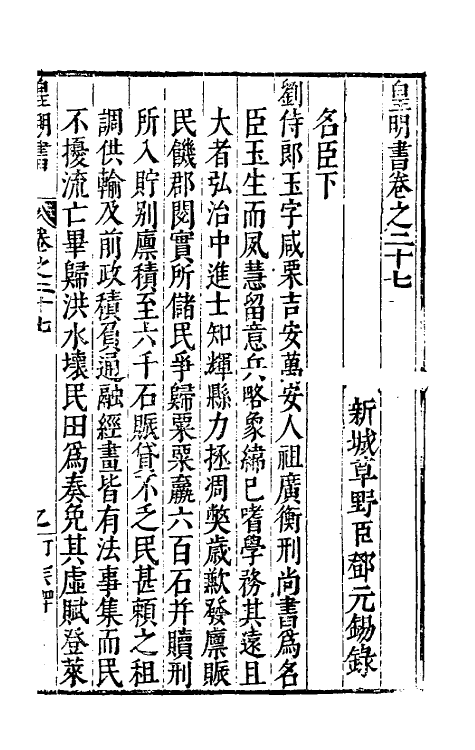 皇明書卷之二十七
新城草野臣鄧元錫錄
名臣下
劉侍郎玉字咸栗吉安萬安人祖廣衡刑尚書爲名
臣玉生而夙慧留意兵略象緯已嗜學務其遠且
大者弘治中進士知輝縣力拯凋獘歲歉發廪賑
民饑郡閱實所儲民爭歸粟粟贏六百石并贖刑
所入貯别廪積至六千石賑貸不乏民甚頼之租
調供輸及前政積負通融經畫皆有法事集而民
不擾流亡畢歸洪水壞民田爲奏免其虛賦登萊
皇明書
卷之二十七